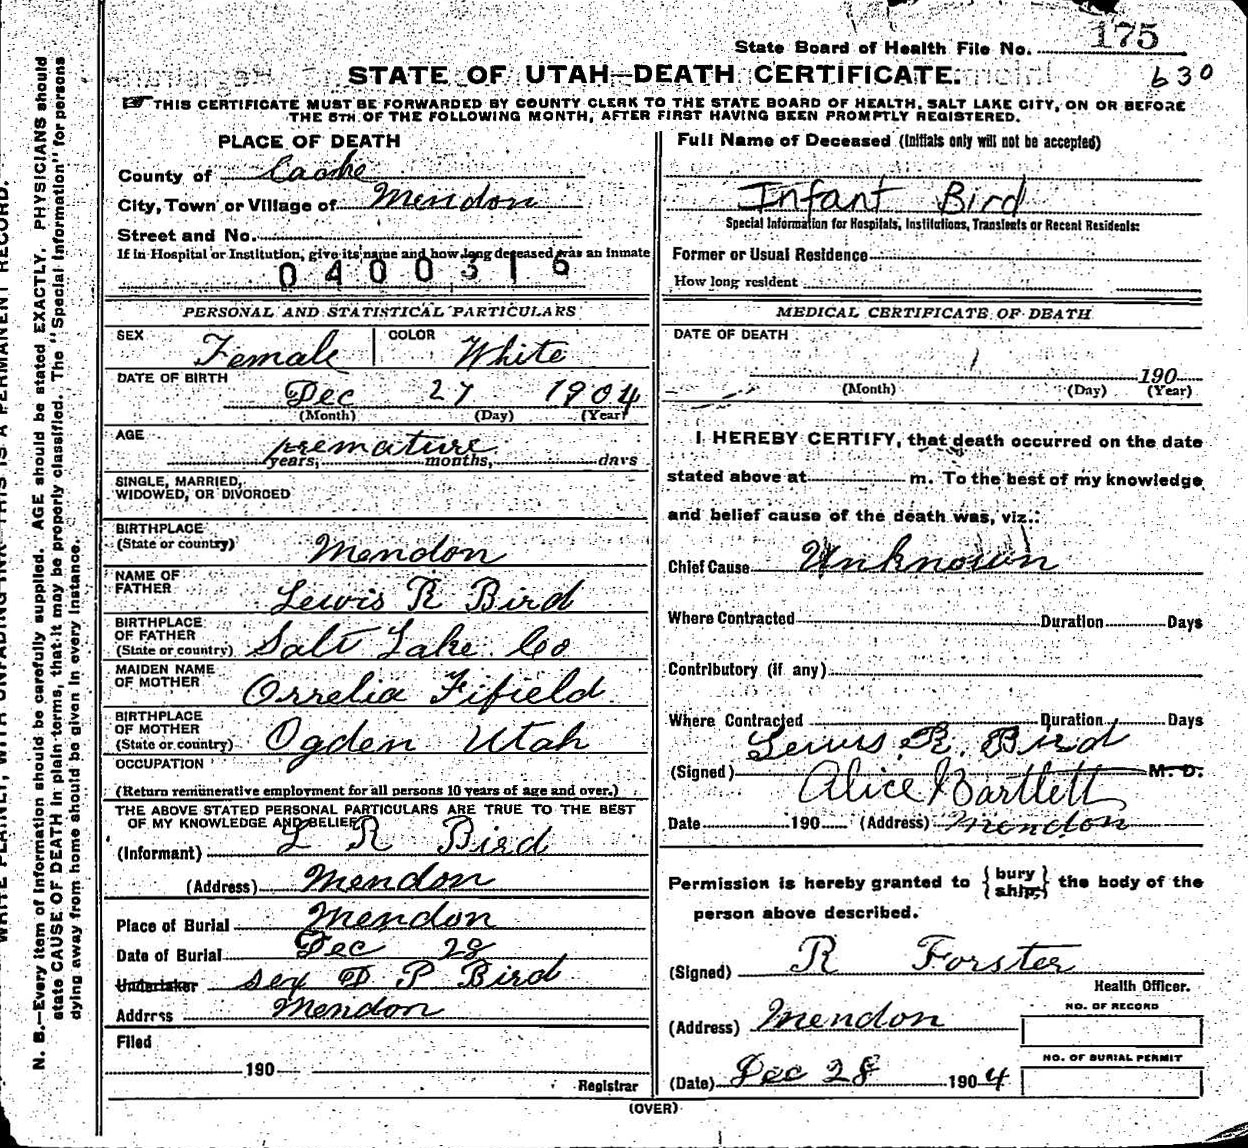 State Board of Health File No. 175
630
STATE OF UTAH—DEATH CERTIFICATE.
THIS CERTIFICATE MUST BE FORWARDED BY COUNTY CLERK TO THE STATE BOARD OF HEALTH, SALT LAKE CITY, ON OR BEFORE
THE 5TH OF THE FOLLOWING MONTH, AFTER FIRST HAVING BEEN PROMPTLY REGISTERED.
PLACE OF DEATH
County of Cache
City, Town or Village of Mendon
Street and No.
If in Hospital or Institution, give its name and how long deceased was an inmate
0400316
PERSONAL AND STATISTICAL PARTICULARS
SEX Female COLOR White
DATE OF BIRTH Dec 27 1904
(Month) (Day) (Year)
AGE premature
years, months, days
SINGLE, MARRIED,
WIDOWED, OR DIVORCED
BIRTHPLACE
(State or country) Mendon
NAME OF
FATHER Lewis R Bird
BIRTHPLACE
OF FATHER
(State or country) Salt Lake Co
MAIDEN NAME
OF MOTHER Orrelia Fifield
BIRTHPLACE
OF MOTHER
(State or country) Ogden Utah
OCCUPATION
(Return remunerative employment for all persons 10 years of age and over.)
THE ABOVE STATED PERSONAL PARTICULARS ARE TRUE TO THE BEST
OF MY KNOWLEDGE AND BELIEF
(Informant) L R Bird
(Address) Mendon
Place of Burial Mendon
Date of Burial Dec 28
Undertaker sex D P Bird
Address Mendon
Filed
190
Registrar
Full Name of Deceased (Initials only will not be accepted)
Infant Bird
Special Information for Hospitals, Institutions, Transients or Recent Residents:
Former or Usual Residence
How long resident
MEDICAL CERTIFICATE OF DEATH
DATE OF DEATH
190
(Month) (Day) (Year)
I HEREBY CERTIFY, that death occurred on the date
stated above at m. To the best of my knowledge
and belief cause of the death was, viz.:
Chief Cause Unknown
Where Contracted Duration Days
Contributory (if any)
Where Contracted Duration Days
Lewis R. Bird
(Signed) Alice Bartlett M. D.
Date 190 (Address) Mendon
Permission is hereby granted to {bury ship} the body of the
person above described.
(Signed) R Forster
Health Officer.
(Address) Mendon
NO. OF RECORD
NO. OF BURIAL PERMIT
(Date) Dec 28 1904
(OVER)
N. B.—Every item of information should be carefully supplied. AGE should be stated EXACTLY. PHYSICIANS should
state CAUSE OF DEATH in plain terms, that it may be properly classified. The "Special Information" for persons
dying away from home should be given in every instance.